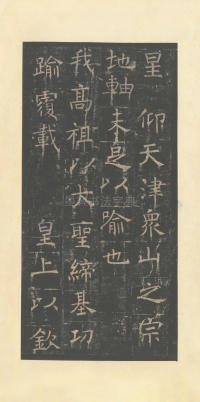 星　仰天津衆山之宗
地軸未足以喻也
我高祖以大聖締基功
踰覆載　皇上以欽